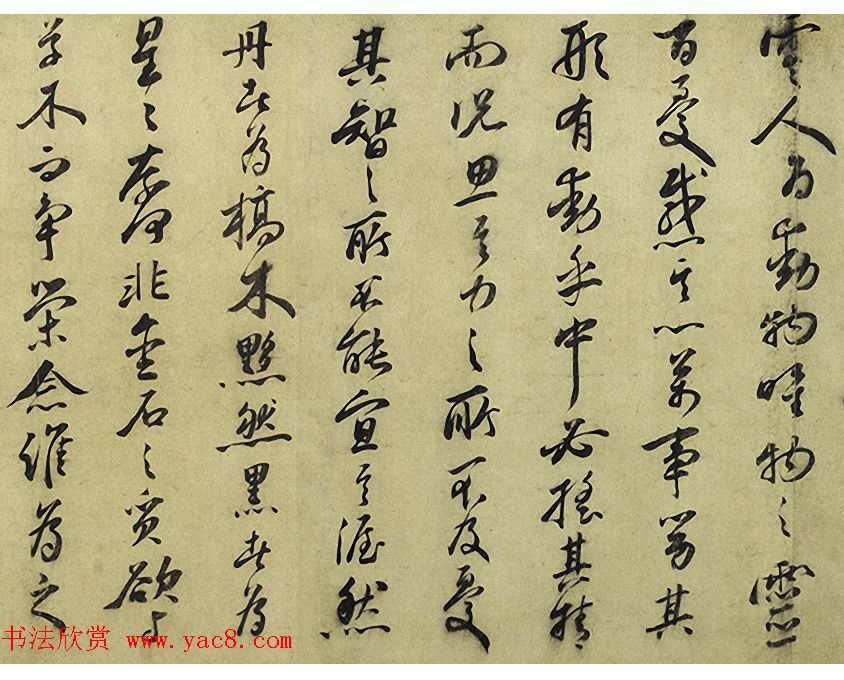 零人為動物唯物之靈
百憂感其心萬事勞其
形有動乎中必搖其精
而況思其力之所不及憂
其智之所不能宜其渥然
丹者為槁木黟然黑者為
星〻奈何非金石之質欲與
草木而爭榮念誰為之
书法欣赏 www.yac8.com